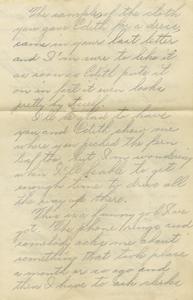 The sample of the cloth
you gave Edith for a dress
came in your last letter
and I'm sure to like it
as soon as Edith puts it
on in fact it even looks
pretty by itself.
I'll be glad to have
you and Edith show me
where you picked the fern
leaf tho, but I'm wondering
when I'll be able to get
enough time to drive all
the way up there.
This is a funny job I've
got. The phone rings and
somebody asks me about
something that took place
a month or so ago and
then I have to ask clerks